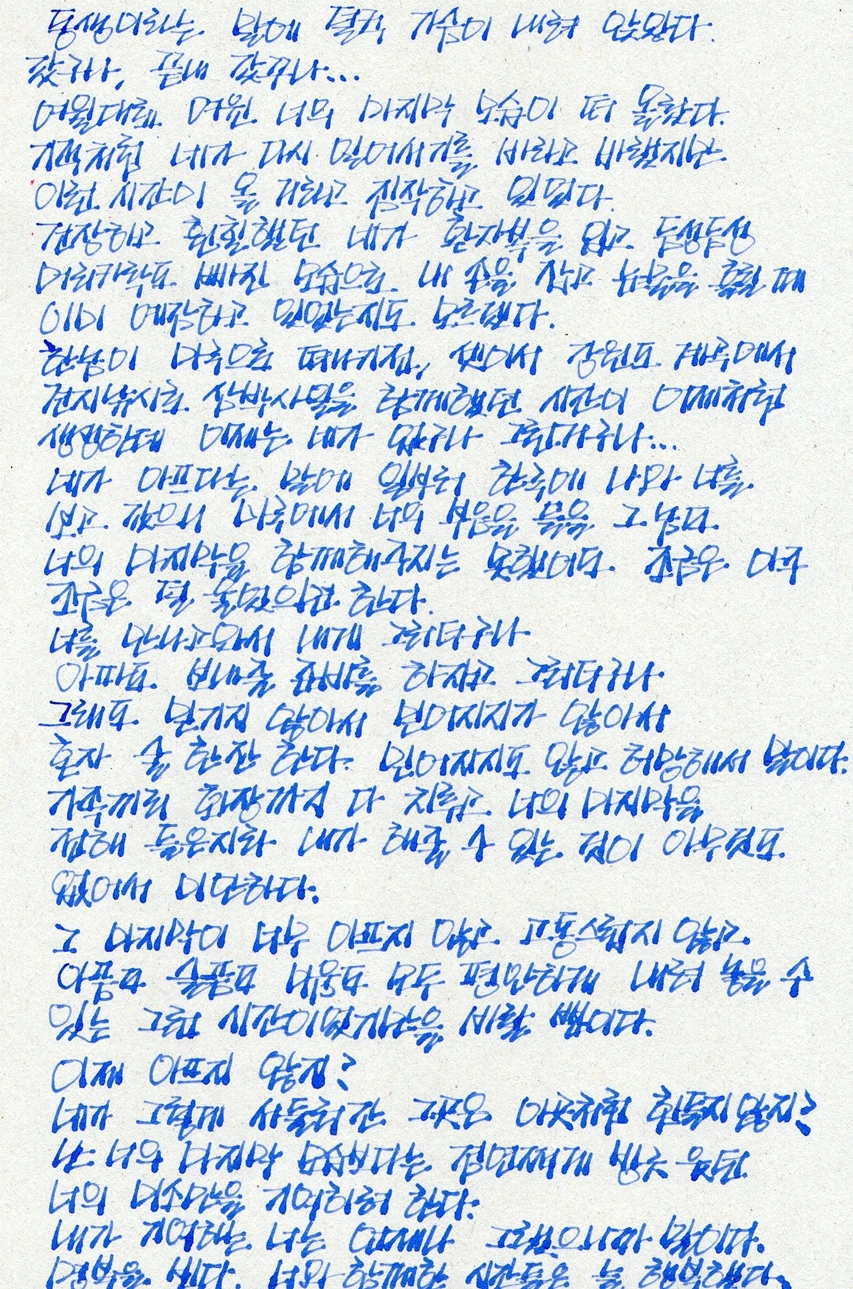 동생이라는 말에 덜컥 가슴이 내려 앉았다.
갔구나, 끝내 갔구나...
여윌대로 여윈 너의 마지막 모습이 떠 올랐다.
기적처럼 네가 다시 일어서기를 바라고 바랬지만
이런 시간이 올 거라고 짐작하고 있었다.
건장하고 훤칠했던 네가 환자복을 입고 듬성듬성
머리카락도 빠진 모습으로 내 손을 잡고 눈물을 흘릴 때
이미 예감하고 있었는지도 모르겠다.
한남이 마루으로 떠나기전, 셋이서 강원도 계곡에서
천지낚시로 삼박사일을 함께했던 시간이 어제처럼
생생한데 이제는 네가 없구나 그렇구나...
네가 아프다는 말에 일부러 한국에 나와 너를
보고 갔으니 마루에서 너의 부음을 들을 그 남다.
너의 마지막을 함께해주지는 못했어도. 조금은 아주
조금은 덜 슬펐으면 한다.
너를 만나고와서 내게 그러더구나
아파도. 보내줄 준비를 하자고 그러더구나.
그래도. 믿기지 않아서 믿어지지가 않아서
혼자 술 한잔 한다. 믿어지지도 않고 허망해서 말이다.
가족끼리 화장까지 다 치르고 너의 마지막을
전해 들은지라 내가 해줄 수 있는 것이 아무것도.
없어서 미안하다.
그 마지막이 너무 아프지 않고. 고통스럽지 않고.
아픔도 슬픔도 미움도 모두 편안하게 내려 놓을 수
있는 그런 시간이었기만을 바랄 뿐이다.
이제 아프지 않지?
네가 그렇게 서둘러 간 그곳은 이곳처럼 힘들지 않지?
난 너의 마지막 모습보다는 정면째게 방긋 웃던
너의 미소만을 기억하려 한다.
내가 기억하는 너는 언제나 그랬으니까 말이다.
명복을 빈다. 너와 함께한 시간들은 늘 행복했다.